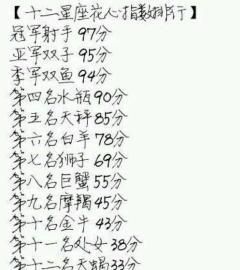 【十二星座花心指数排行】
冠军射手97分
亚军双子95分
季军双鱼94分
第四名水瓶90分
第五名天秤85分
第六名白羊78分
第七名狮子69分
第八名巨蟹55分
第九名摩羯45分
第十名金牛43分
第十一名处女38分
第十二名天蝎33分